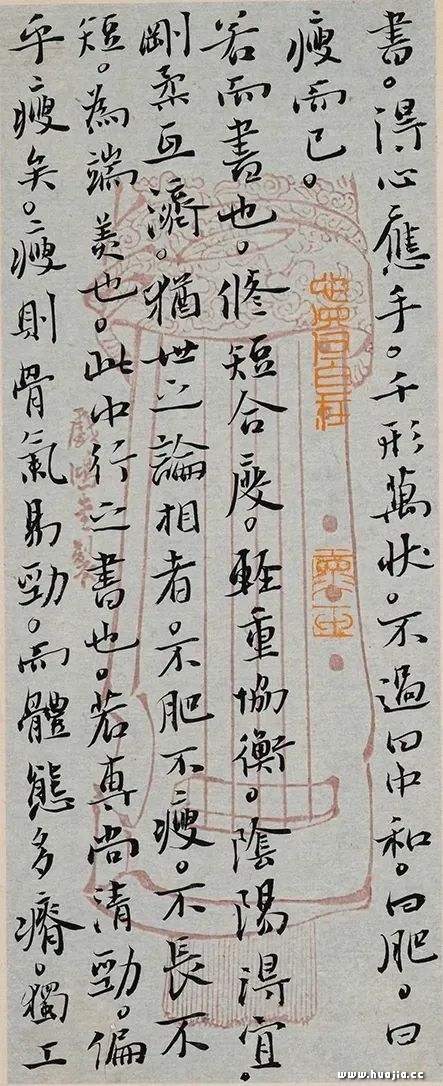 書。得心應手。千形萬狀。不過曰中和。曰肥。曰
瘦而已。
若而書也。修短合度。輕重協衡。陰陽得宜。
剛柔互濟。猶世之論相者。不肥不瘦。不長不
短。為端美也。此中行之書也。若專尚清勁。偏
乎瘦矣。瘦則骨氣易勁。而體態多瘠。獨工
www.huajia.cc